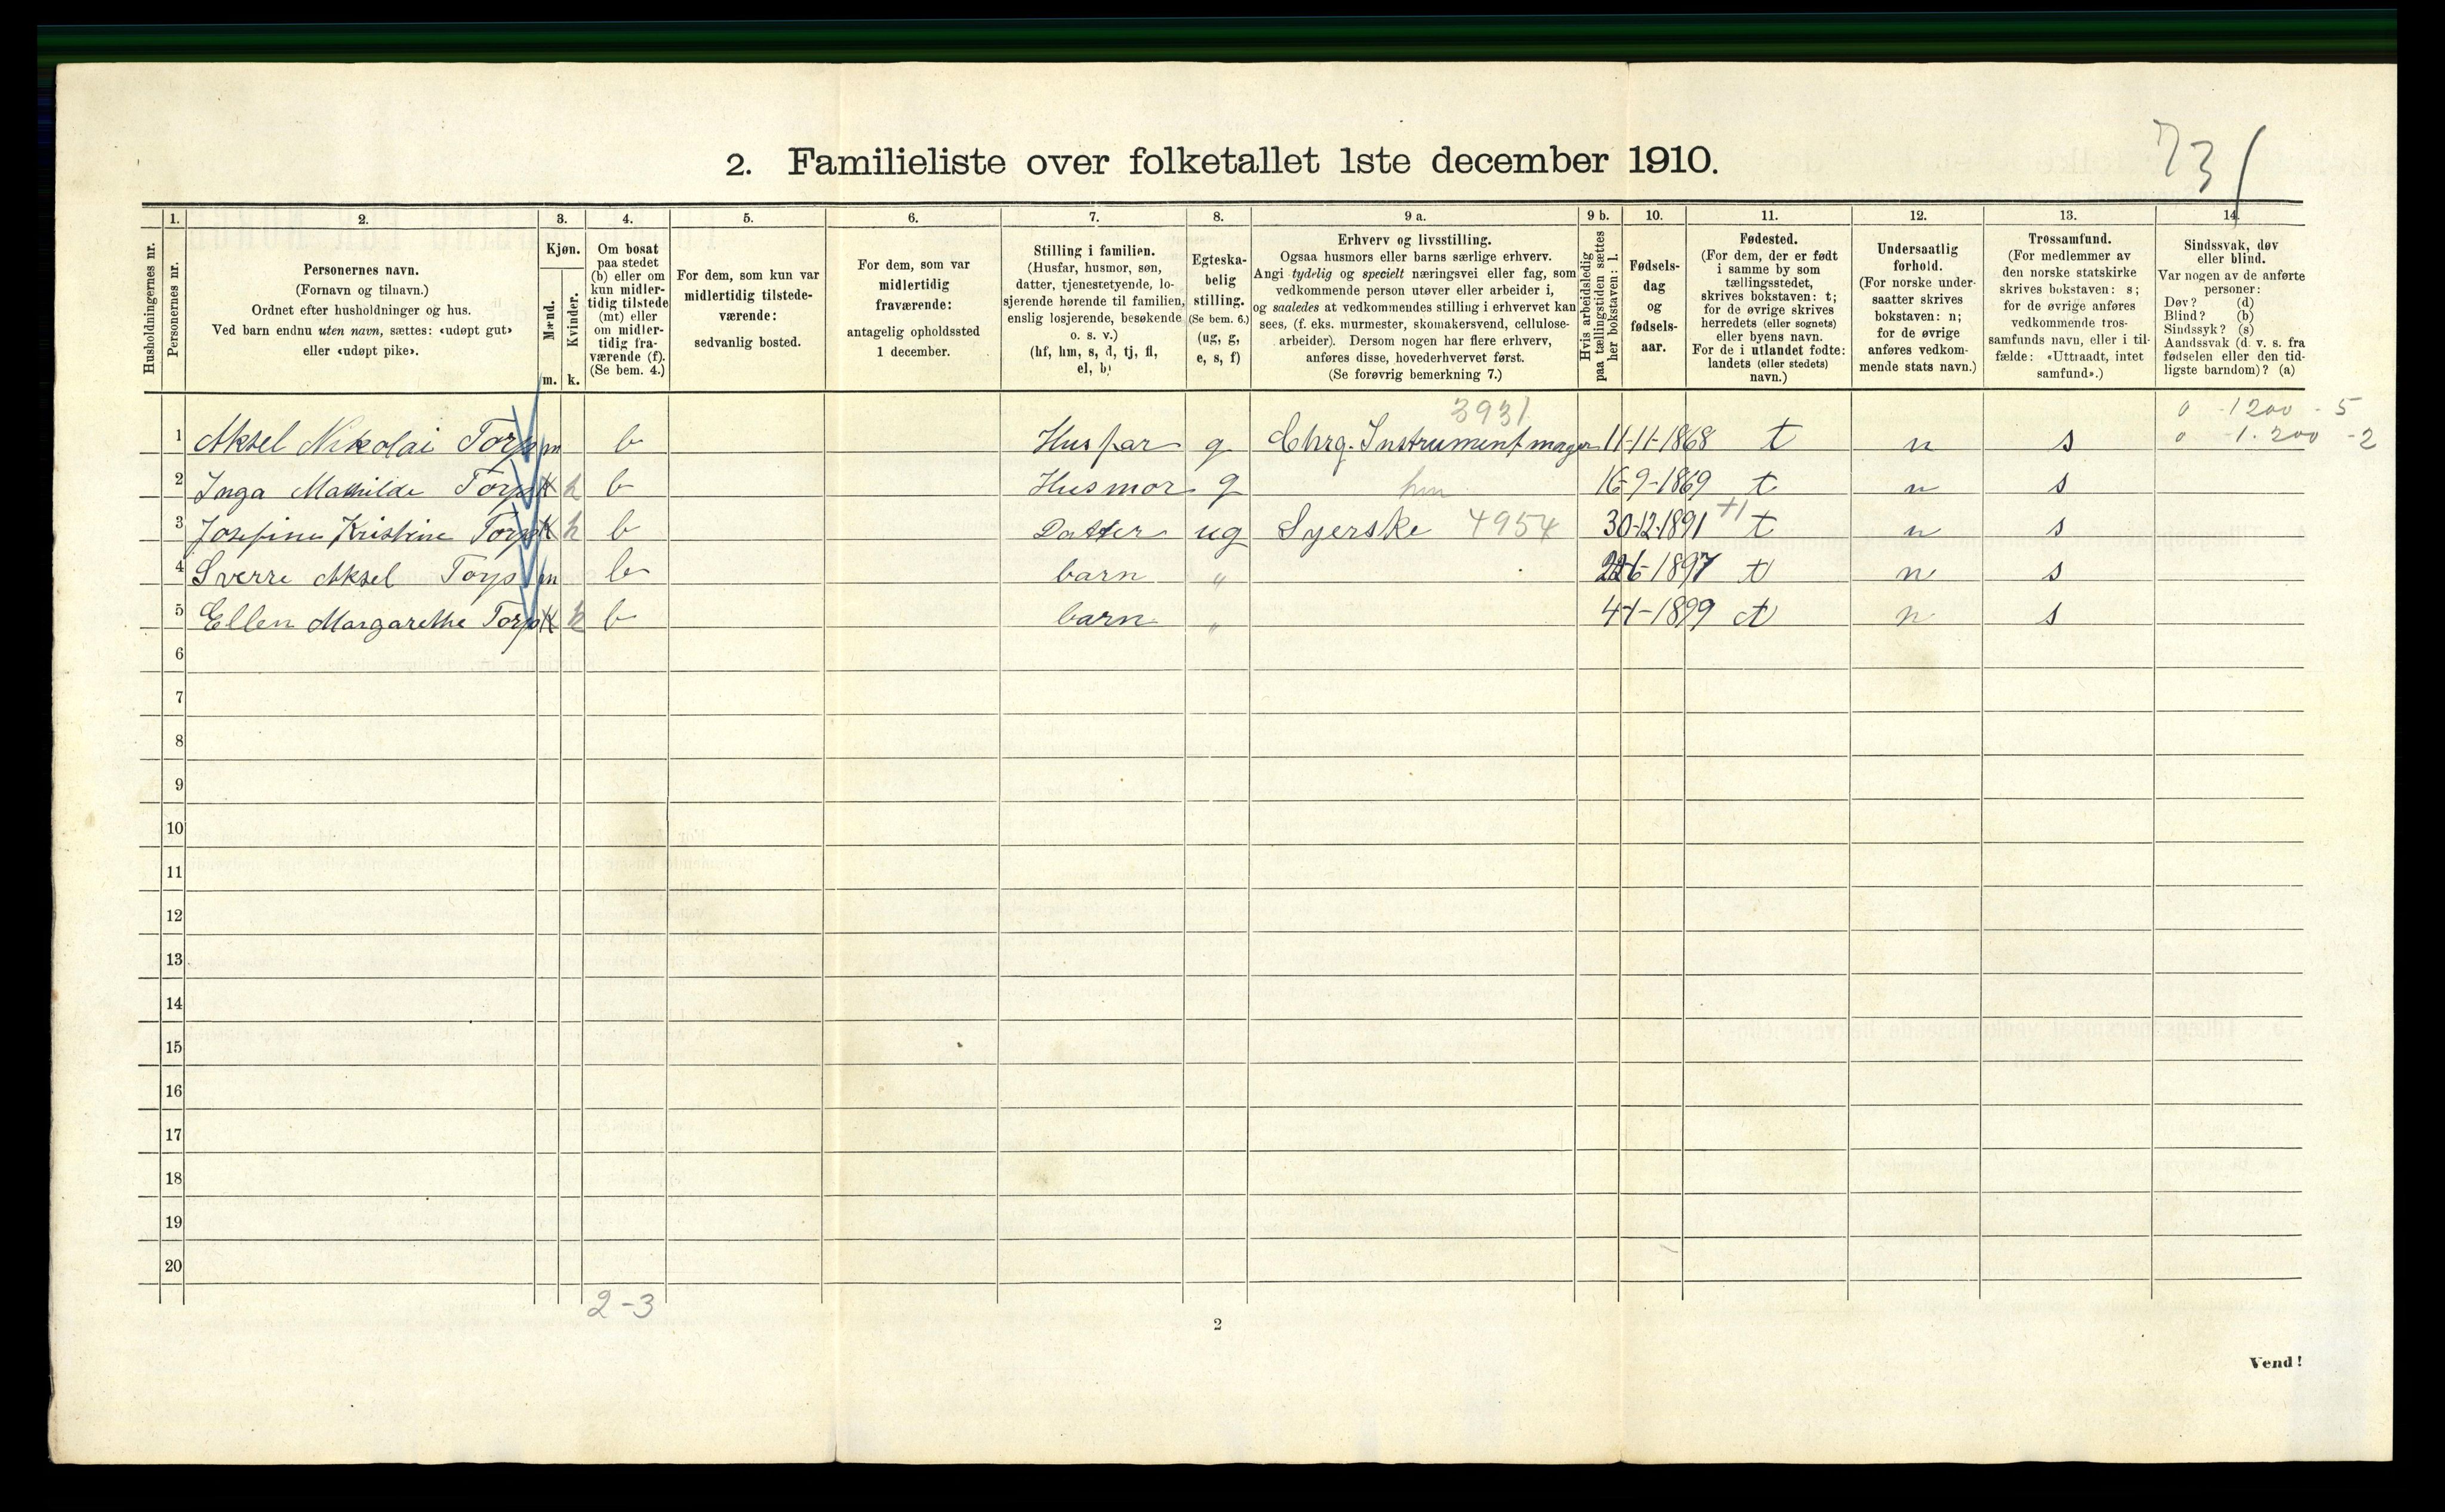 731
2. Familieliste over folketallet 1ste december 1910.
1. 2. 3. 4. 5. 6. 7. 8. 9 a. 9 b. 10. 11. 12. 13. 14.
Husholdningernes nr.
Personernes nr.
Personernes navn.
(Fornavn og tilnavn.)
Ordnet efter husholdninger og hus.
Ved barn endnu uten navn, sættes: «udøpt gut»
eller «udøpt pike».
Kjøn.
Mænd.
Kvinder.
m. k.
Om bosat
paa stedet
(b) eller om
kun midler-
tidig tilstede
(mt) eller
om midler-
tidig fra-
værende (f).
(Se bem. 4.)
For dem, som kun var
midlertidig tilstede-
værende:
sedvanlig bosted.
For dem, som var
midlertidig
fraværende:
antagelig opholdssted
1 december.
Stilling i familien.
(Husfar, husmor, søn,
datter, tjenestetyende, lo-
sjerende hørende til familien,
enslig losjerende, besøkende
o. s. v.)
(hf, hm, s, d, tj, fl,
el, b)
Egteska-
belig
stilling.
(Se bem. 6.)
(ug, g,
e, s, f)
Erhverv og livsstilling.
Ogsaa husmors eller barns særlige erhverv.
Angi tydelig og specielt næringsvei eller fag, som
vedkommende person utøver eller arbeider i,
og saaledes at vedkommendes stilling i erhvervet kan
sees, (f. eks. murmester, skomakersvend, cellulose-
arbeider). Dersom nogen har flere erhverv,
anføres disse, hovederhvervet først.
(Se forøvrig bemerkning 7.)
Hvis arbeidsledig
paa tællingstiden sættes
her bokstaven: l.
Fødsels-
dag
og
fødsels-
aar.
Fødested.
(For dem, der er født
i samme by som
tællingsstedet,
skrives bokstaven: t;
for de øvrige skrives
herredets (eller sognets)
eller byens navn.
For de i utlandet fødte:
landets (eller stedets)
navn.)
Undersaatlig
forhold.
(For norske under-
saatter skrives
bokstaven: n;
for de øvrige
anføres vedkom-
mende stats navn.)
Trossamfund.
(For medlemmer av
den norske statskirke
skrives bokstaven: s;
for de øvrige anføres
vedkommende tros-
samfunds navn, eller i til-
fælde: «Uttraadt, intet
samfund».)
Sindssvak, døv
eller blind.
Var nogen av de anførte
personer:
Døv? (d)
Blind? (b)
Sindssyk? (s)
Aandssvak (d. v. s. fra
fødselen eller den tid-
ligste barndom)? (a)
3931 0 - 1200 - 5
1 Aksel Nikolai Torp m b Husfar g Chrg. Instrumentmager 11-11-1868 t n s 0 - 1.200 - 2
2 Inga Mathilde Torp k b Husmor g hm 16-9-1869 t n s
3 Josefine Kristine Torp k b Datter ug Syerske 4954 30-12-1891 +1 t n s
4 Sverre Aksel Torp m b barn " 22-6-1897 t n s
5 Ellen Margarethe Torp k b barn " 4-1-1899 t n s
6
7
8
9
10
11
12
13
14
15
16
17
18
19
20
2-3
2
Vend!